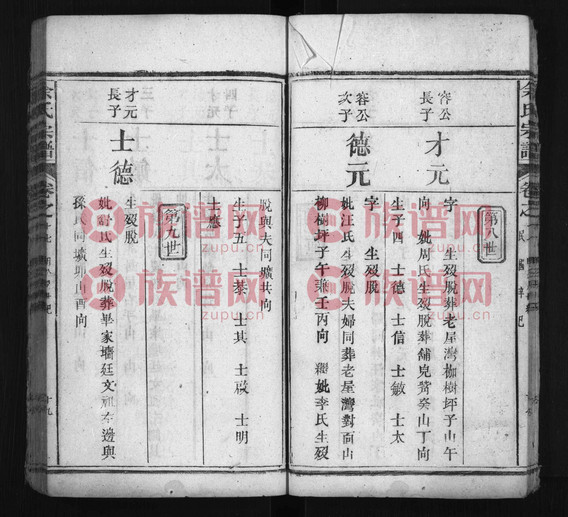 余氏宗譜
卷之
第八世
容公
長子
才元
字 生歿脫葬老屋灣枷樹坪子山午
向 妣周氏生歿脫葬舖兒凳癸山丁向
生子四 士德 士信 士敏 士太
容公
次子
德元
字 生歿脫
妣汪氏生歿脫夫婦同葬老屋灣對面山
柳樹坪子午兼壬丙向 繼妣李氏生歿
脫與夫同壙共向
生子五 士泰 士其 士啟 士明
士應
第九世
才元
長子
士德
生歿脫
妣舒氏生歿脫葬畢家墻廷文祖左邊與
孫氏同壙卯山酉向
余氏宗譜
卷之
族谱网
zupu.cn
族谱网
zupu.cn
族谱网
zupu.cn
族谱网
zupu.cn